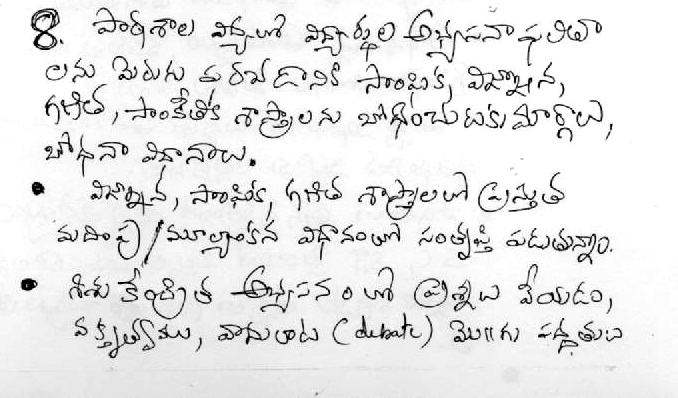 8. పాఠశాల విద్యలో విద్యార్థుల అభ్యసనా ఫలితా
లను మెరుగు పరచడానికి సాంఘిక, విజ్ఞాన,
గణిత, సాంకేతిక శాస్త్రాలను బోధించుటకు మార్గాలు,
బోధనా విధానాలు.
• విజ్ఞాన, సాంఘిక, గణిత శాస్త్రాలలో ప్రస్తుత
మదింపు/మూల్యాంకన విధానంలో సంతృప్తి పడుతున్నాం.
• శిశు కేంద్రిత అభ్యసనంలో ప్రశ్నలు వేయడం,
వక్తృత్వము, వాదులాట (debate) మొ॥గు పద్ధతుల